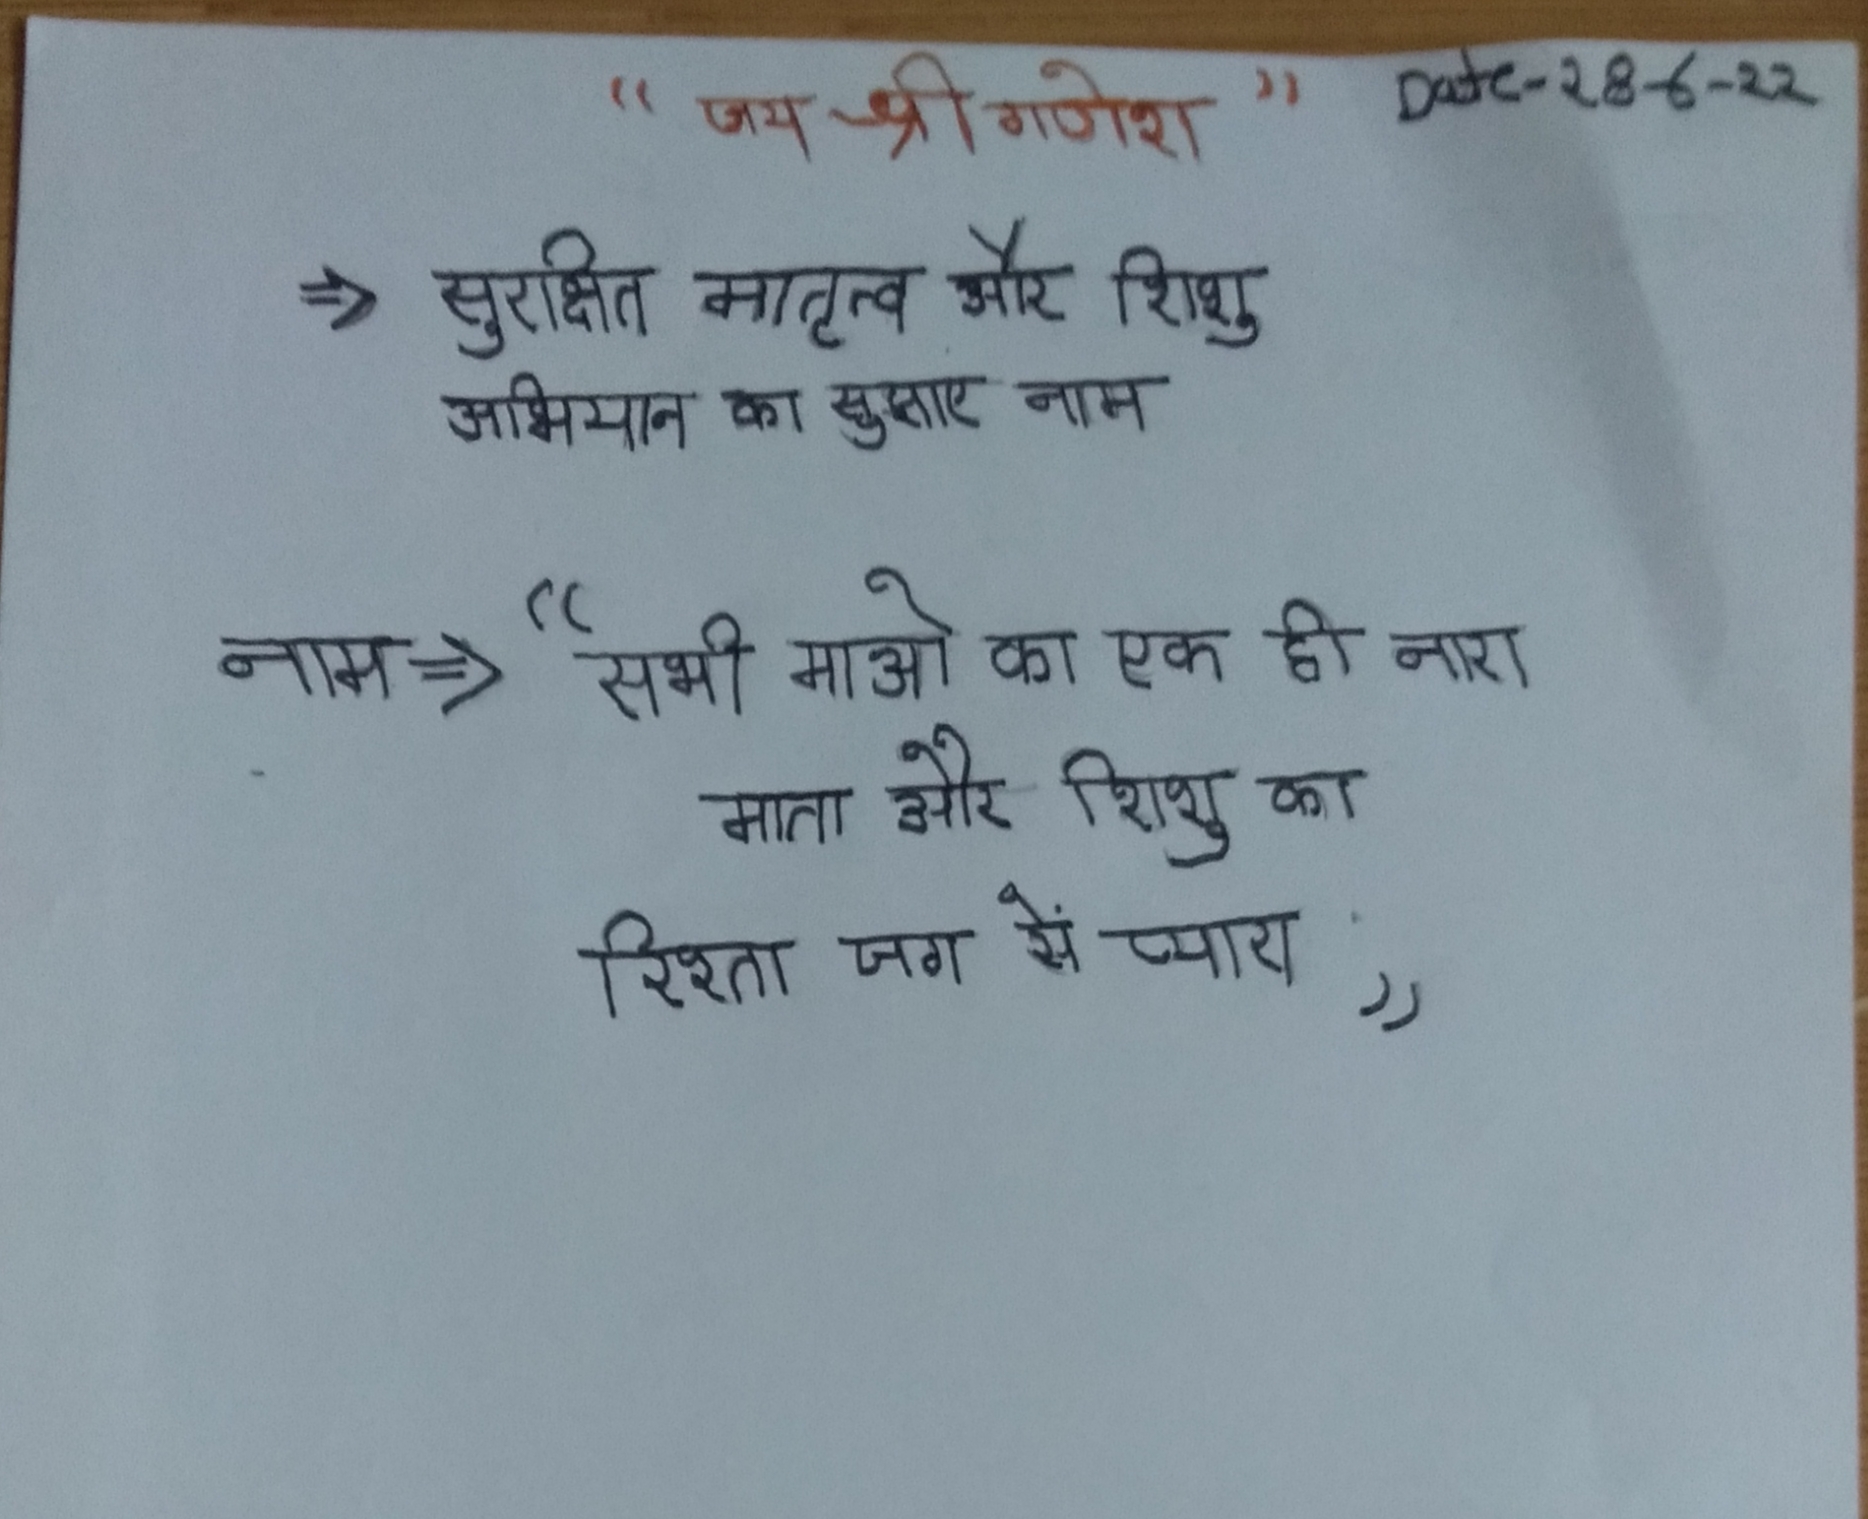 " जय श्री गणेश " Date-28-6-22
⇒ सुरक्षित मातृत्व और शिशु
अभियान का नाम
नाम ⇒ " सभी माओ का एक ही नारा
माता और शिशु का
रिश्ता जग सें प्यारा "